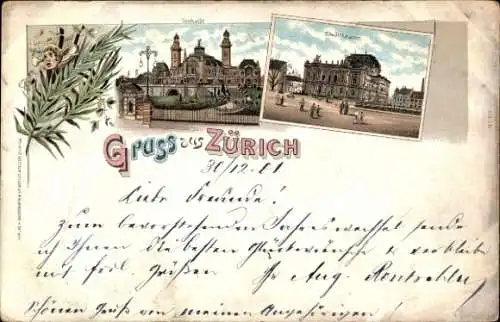 Tonhalle
Stadttheater
Gruss aus Zürich
30/12.01
Liebe Freunde!
Zum bevorstehenden Jahreswechsel sende
ich Ihnen die besten Glückwünsche & verbleibe
mit frdl. Grüßen Ihr Aug.
Schönen Gruß von meinen Angehörigen!